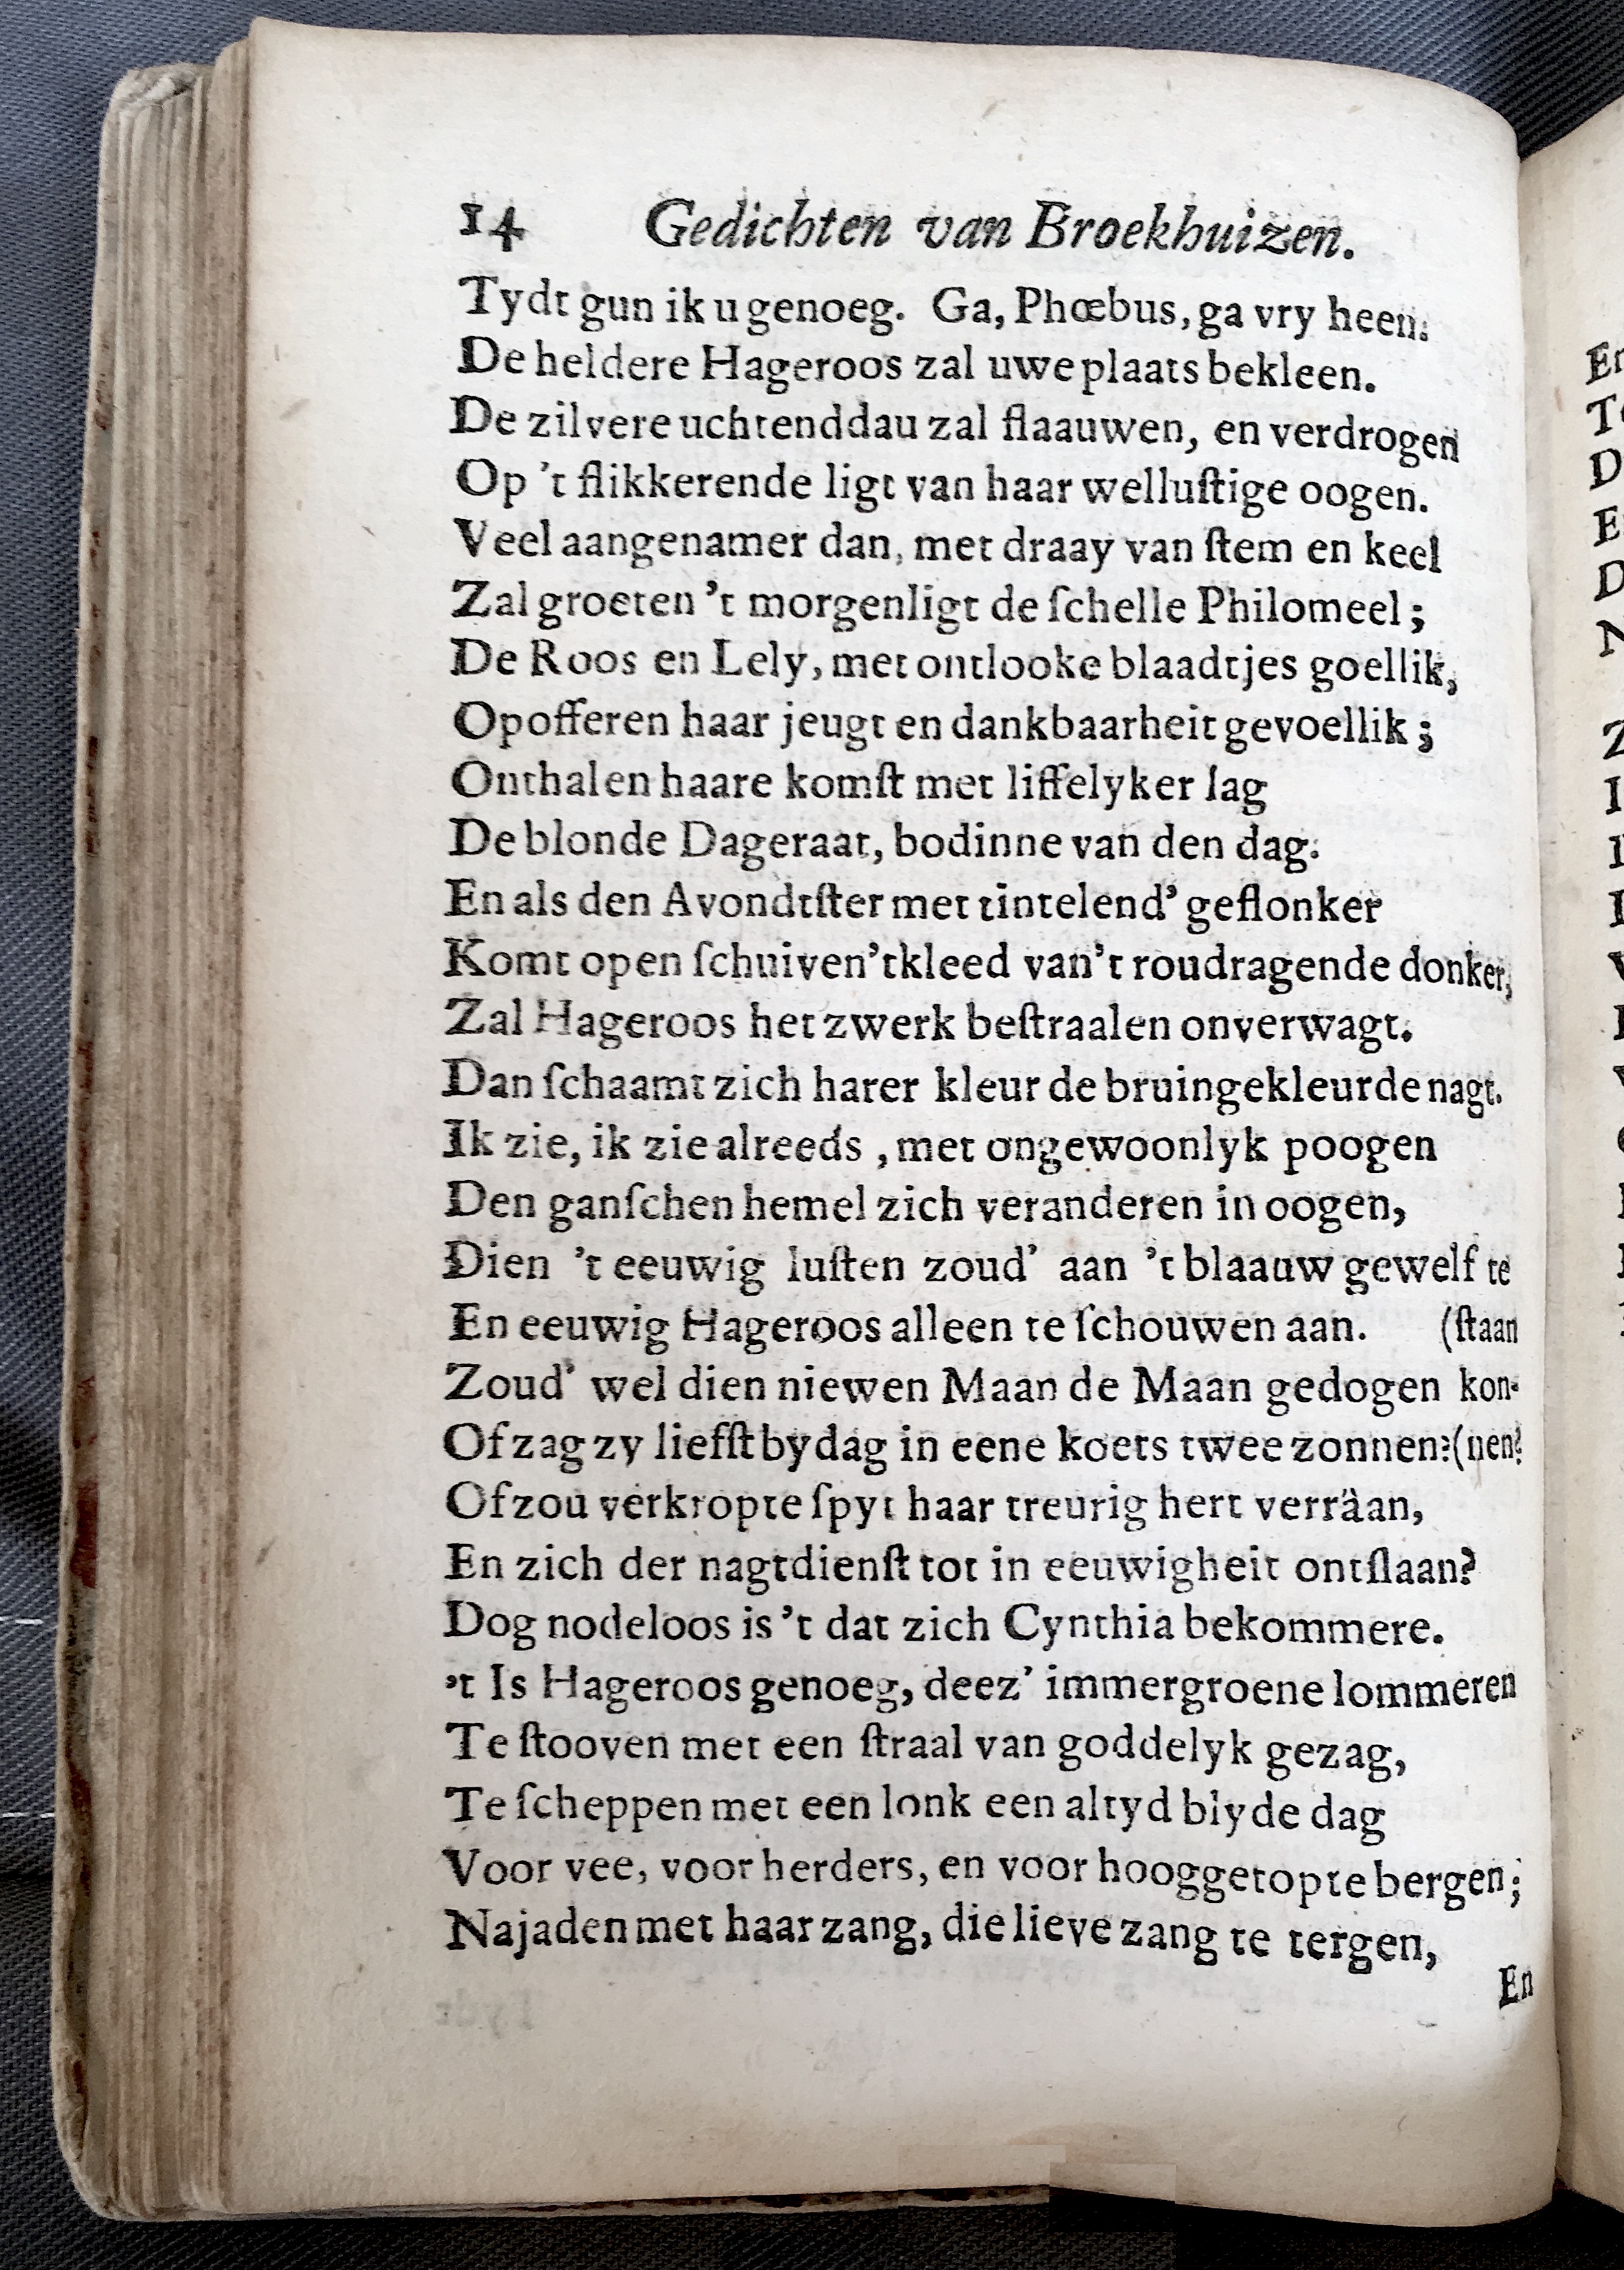 14 Gedichten van Broekhuizen.
Tydt gun ik u genoeg. Ga, Phœbus, ga vry heen.
De heldere Hageroos zal uwe plaats bekleen.
De zilvere uchtenddau zal flaauwen, en verdrogen
Op 't flikkerende ligt van haar welluſtige oogen.
Veel aangenamer dan, met draay van ſtem en keel
Zal groeten 't morgenligt de ſchelle Philomeel;
De Roos en Lely, met ontlooke blaadtjes goellik,
Opofferen haar jeugt en dankbaarheit gevoellik;
Onthalen haare komſt met liffelyker lag
De blonde Dageraat, bodinne van den dag.
En als den Avondtſter met tintelend' geflonker
Komt open ſchuiven 't kleed van 't roudragende donker,
Zal Hageroos het zwerk beſtraalen onverwagt.
Dan ſchaamt zich harer kleur de bruingekleurde nagt.
Ik zie, ik zie alreeds, met ongewoonlyk poogen
Den ganſchen hemel zich veranderen in oogen,
Dien 't eeuwig luſten zoud' aan 't blaauw gewelf te
En eeuwig Hageroos alleen te ſchouwen aan. (ſtaan
Zoud' wel dien niewen Maan de Maan gedogen kon-
Of zag zy liefſt by dag in eene koets twee zonnen? (nen?
Of zou verkropte ſpyt haar treurig hert verräan,
En zich der nagtdienſt tot in eeuwigheit ontſlaan?
Dog nodeloos is 't dat zich Cynthia bekommere.
't Is Hageroos genoeg, deez' immergroene lommeren
Te ſtooven met een ſtraal van goddelyk gezag,
Te ſcheppen met een lonk een altyd blyde dag
Voor vee, voor herders, en voor hooggetopte bergen;
Najaden met haar zang, die lieve zang te tergen,
En